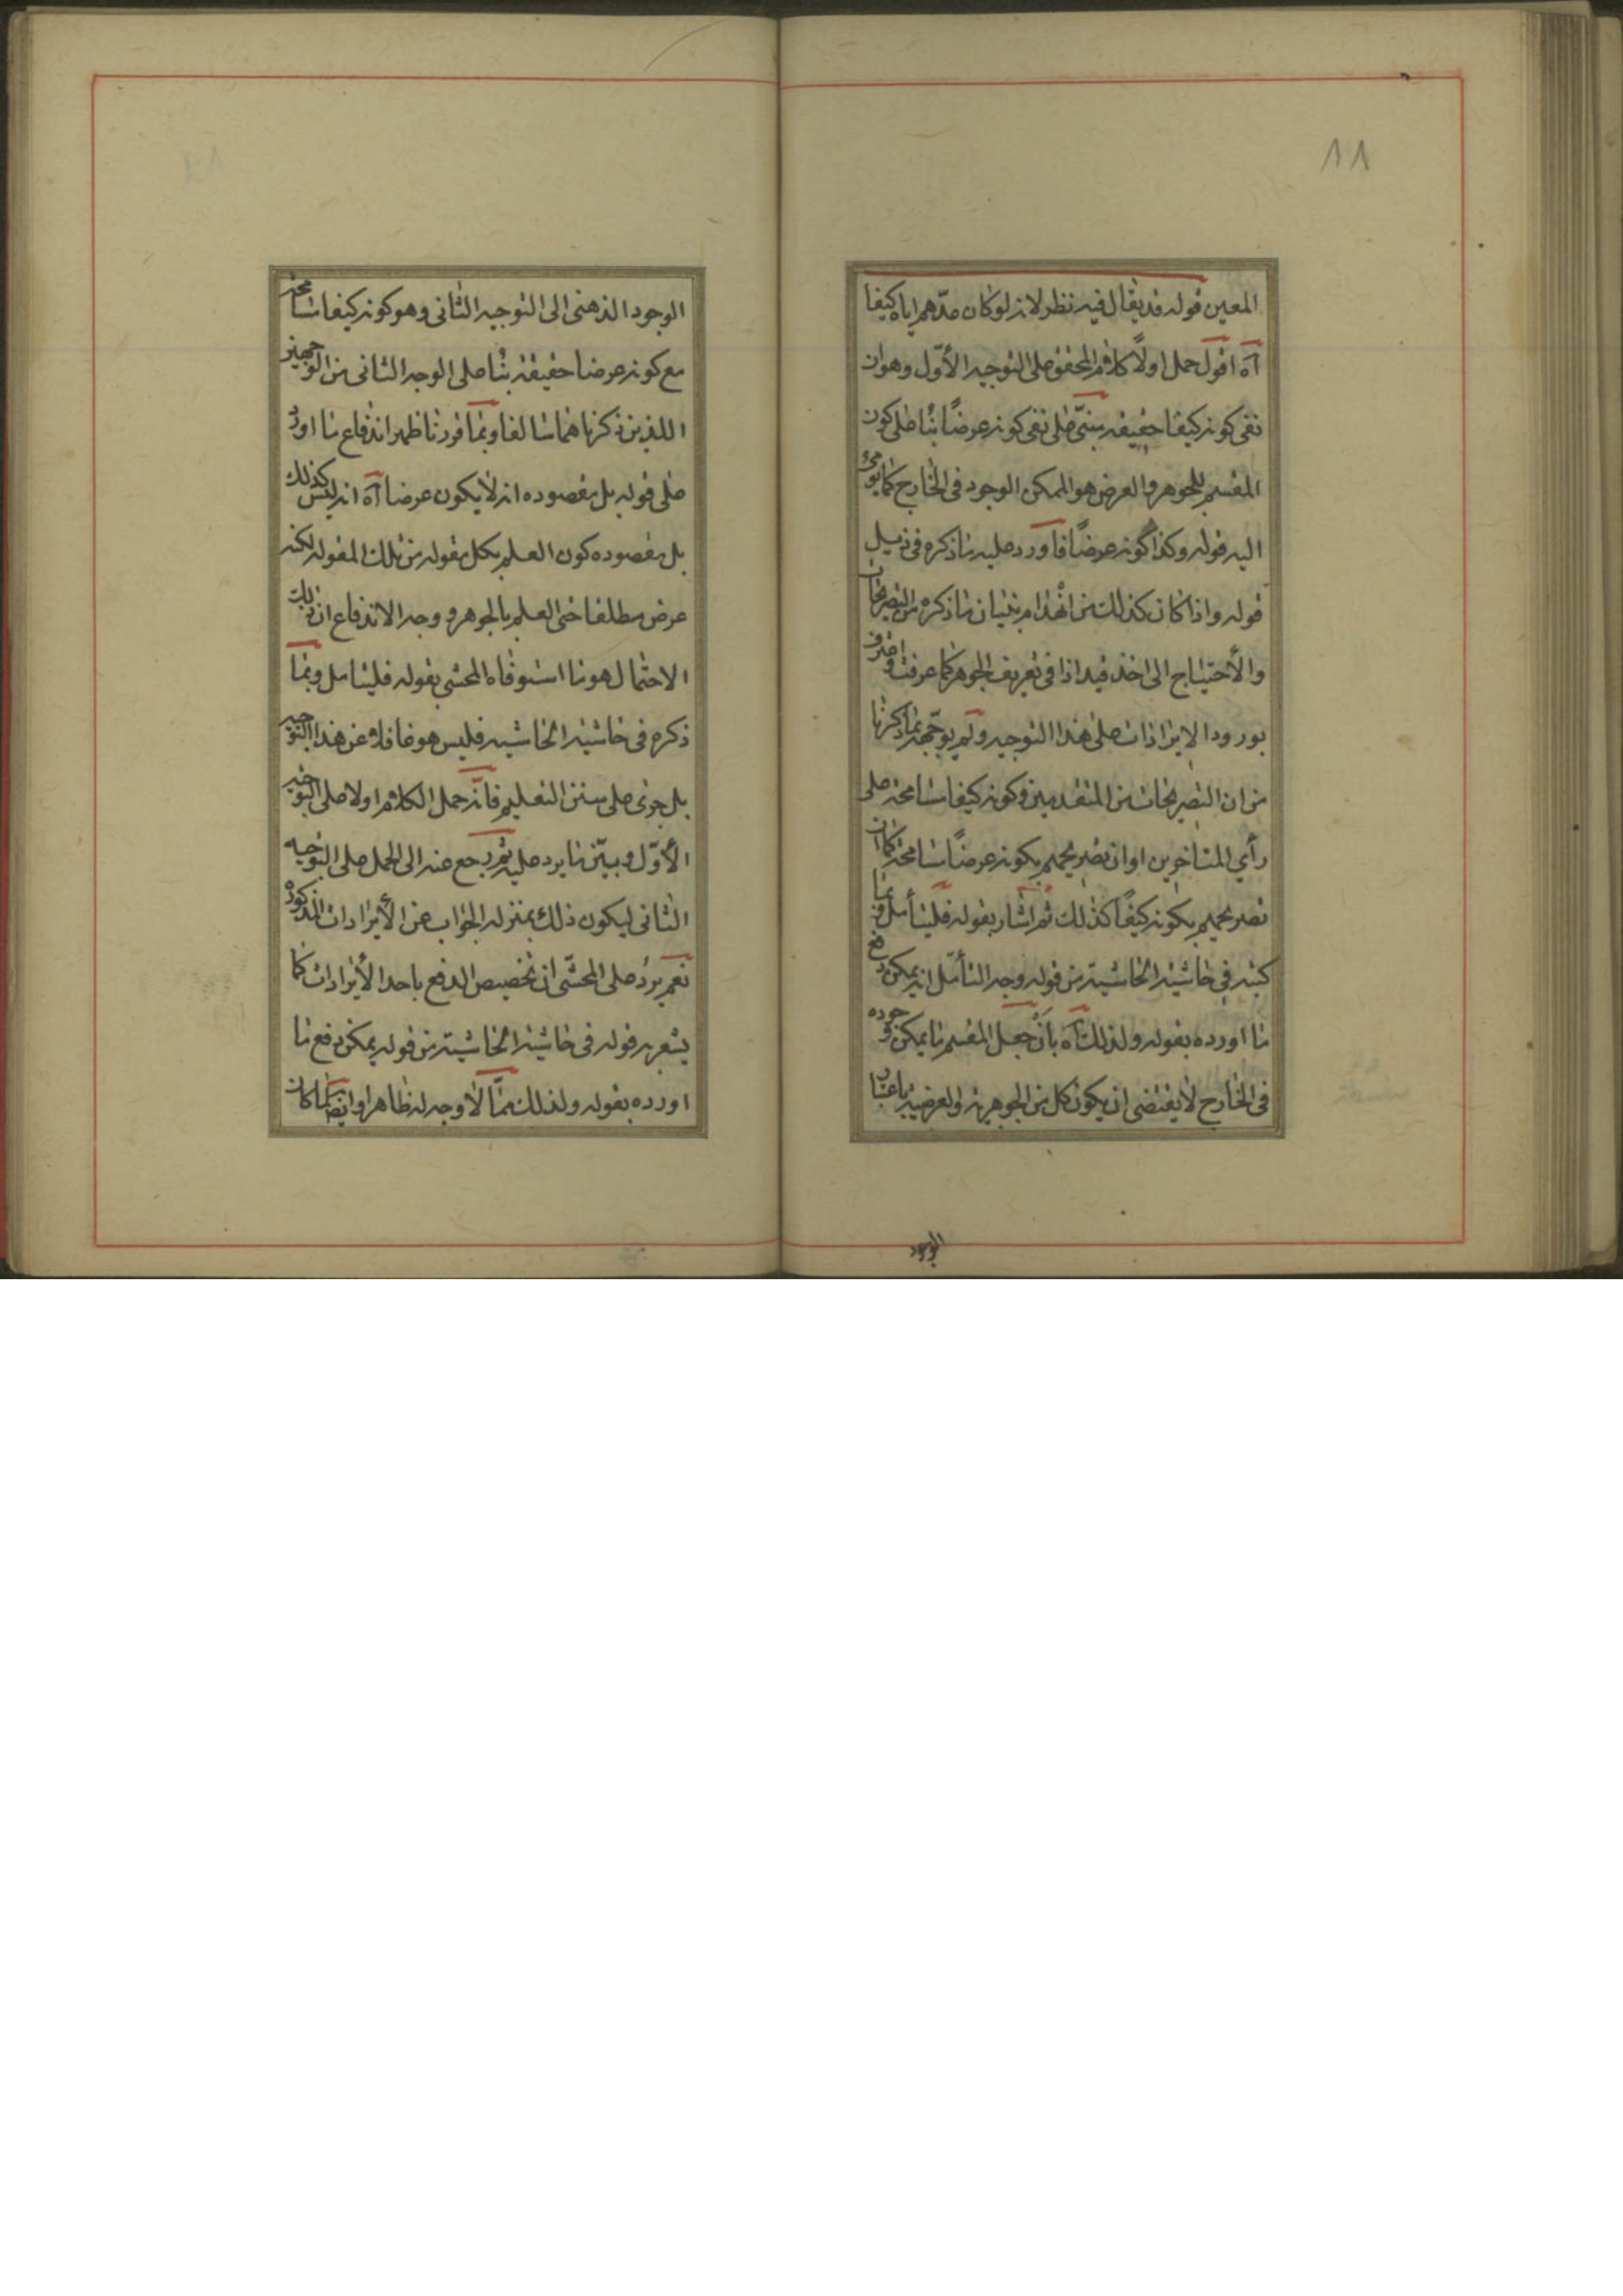 ١١
المعين قوله قد يقال فيه نظر لانه لو كان عدّهم اياه كيفا
آه اقول حمل اولاً كلام المحقق على التوجيه الأوّل وهو ان
نفى كونه كيفا حقيقة مبنىّ على نفى كونه عرضاً بناء على كون
المقسم للجوهر والعرض هو الممكن الوجود فى الخارج كما يومى
اليه قوله وكذا كونه عرضاً فاورد عليه ما ذكره فى ذيل
قوله واذا كان كذلك من انهدام بنيان ما ذكره من التصريحات
والأحتياج الى اخذ قيد اذا فى تعريف الجوهر كما عرفت واعترف
بورود الايرادات على هذا التوجيه ولم يوجّهه بما ذكرنا
من ان التصريحات من المتقدمين وكونه كيفا مسامحة على
رأي المتاخرين او ان تصريحهم بكونه عرضاً مسامحة كما ان
تصريحهم بكونه كيفاً كذلك ثم اشار بقوله فليتأمل وبما
كتبه فى حاشية الحاشية من قوله وجه التأمّل انه يمكن دفع
ما اورده بقوله ولذلك آه بأن جعل المقسم ما يمكن وجوده
فى الخارج لا يقتضى ان يكون كل من الجوهرية والعرضية باعتبار
الوجود
الوجود الذهنى الى التوجيه الثانى وهو كونه كيفا مسامحة
مع كونه عرضا حقيقة بناء على الوجه الثانى من الوجهين
اللذين ذكرناهما سالفا وبما قررنا ظهر اندفاع ما اورد
على قوله بل مقصوده انه لا يكون عرضا آه انه ليس كذلك
بل مقصوده كون العلم بكل مقولة من تلك المقولة لكنه
عرض مطلقا حتى العلم بالجوهر ووجه الاندفاع ان ذلك
الاحتمال هو ما استوفاه المحشى بقوله فليتامل وبما
ذكره فى حاشية الحاشية فليس هو غافلا عن هذا التوجيه
بل جرى على سنن التعليم فانّه حمل الكلام اولا على التوجيه
الأوّل وبيّن ما يرد عليه ثم رجع عنه الى الحمل على التوجيه
الثانى ليكون ذلك بمنزلة الجواب عن الأيرادات المذكورة
نعم يرد على المحشّى ان تخصيص الدفع باحد الأيرادات كما
يشعر به قوله فى حاشية الحاشية من قوله يمكن دفع ما
اورده بقوله ولذلك ممّا لا وجه له ظاهرا وايضا كما كان